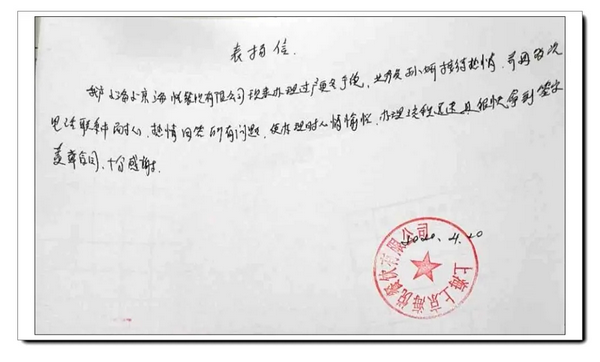 表扬信
我户上海上京海悦餐饮有限公司现来办理过户更名手续，业务员孙娟接待热情，前两次
电话联系中耐心、热情回答所有问题，使办理时心情愉悦，办理流程迅速且很快拿到签字
盖章合同，十分感谢。
2020.4.20
上海上京海悦餐饮有限公司